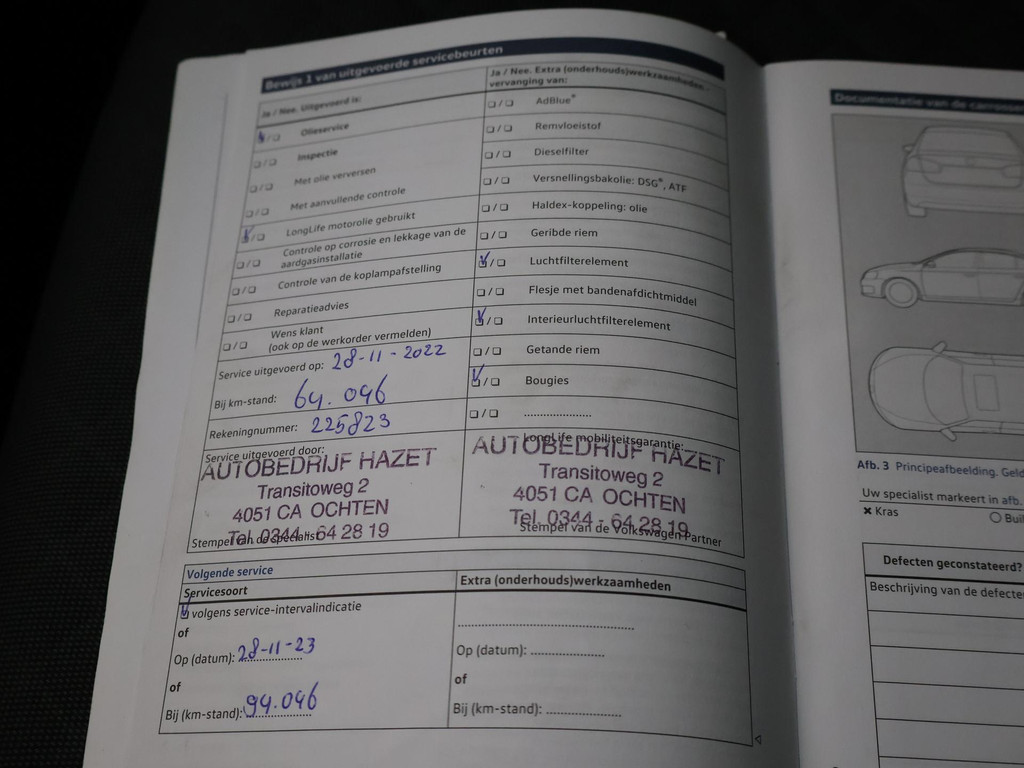 Bewijs 1 van uitgevoerde servicebeurten
Ja / Nee. Uitgevoerd is:
Olieservice
Inspectie
Met olie verversen
Met aanvullende controle
LongLife motorolie gebruikt
Controle op corrosie en lekkage van de
aardgasinstallatie
Controle van de koplampafstelling
Reparatieadvies
Wens klant
(ook op de werkorder vermelden)
Service uitgevoerd op: 28-11-2022
Bij km-stand: 64.046
Rekeningnummer: 225823
Service uitgevoerd door:
AUTOBEDRIJF HAZET
Transitoweg 2
4051 CA OCHTEN
Tel. 0344 - 64 28 19
Stempel van de specialist
Ja / Nee. Extra (onderhouds)werkzaamheden -
vervanging van:
AdBlue®
Remvloeistof
Dieselfilter
Versnellingsbakolie: DSG®, ATF
Haldex-koppeling: olie
Geribde riem
Luchtfilterelement
Flesje met bandenafdichtmiddel
Interieurluchtfilterelement
Getande riem
Bougies
LongLife mobiliteitsgarantie:
AUTOBEDRIJF HAZET
Transitoweg 2
4051 CA OCHTEN
Tel. 0344 - 64 28 19
Stempel van de Volkswagen Partner
Volgende service
Servicesoort
volgens service-intervalindicatie
of
Op (datum): 28-11-23
of
Bij (km-stand): 94.046
Extra (onderhouds)werkzaamheden
Op (datum):
of
Bij (km-stand):
Documentatie van de
Afb. 3 Principeafbeelding.
Uw specialist markeert in afb.
× Kras
Defecten geconstateerd?
Beschrijving van de